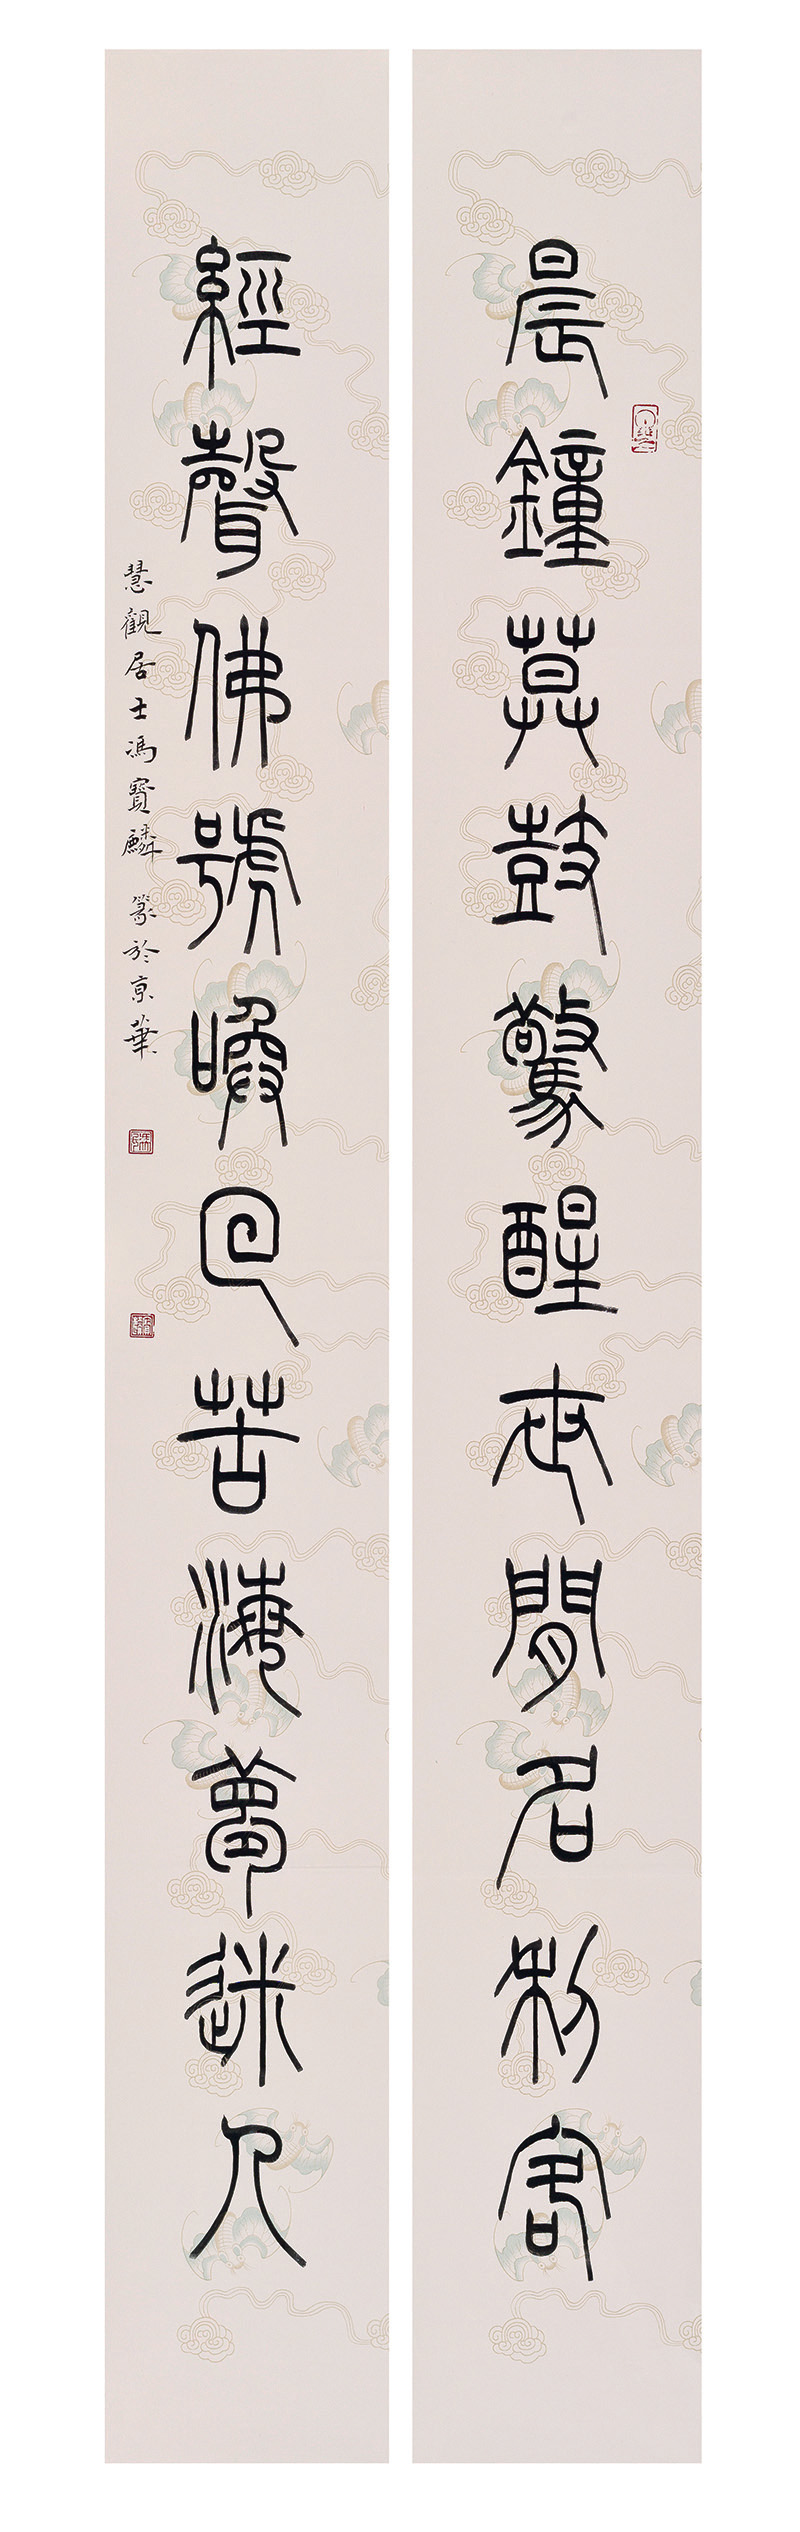 晨鐘莫鼓驚醒世間名利客
經聲佛號喚回苦海夢迷人
慧觀居士馮寶麟篆於京華